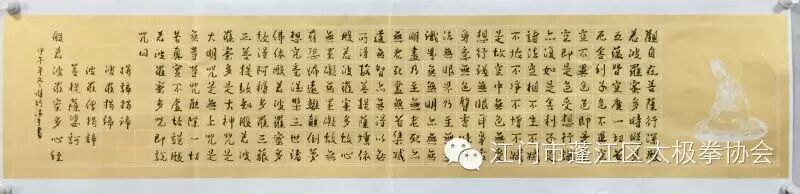 觀自在菩薩行深般
若波羅蜜多時照見
五蘊皆空度一切苦
厄舍利子色不異空
空不異色色即是空
空即是色受想行識
亦復如是舍利子是
諸法空相不生不滅
不垢不淨不增不減
是故空中無色無受
想行識無眼耳鼻舌
身意無色聲香味觸
法無眼界乃至無意
識界無無明亦無無
明盡乃至無老死亦
無老死盡無苦集滅
道無智亦無得以無
所得故菩提薩埵依
般若波羅蜜多故心
無罣礙無罣礙故無
有恐怖遠離顛倒夢
想究竟涅槃三世諸
佛依般若波羅蜜多
故得阿耨多羅三藐
三菩提故知般若波
羅蜜多是大神咒是
大明咒是無上咒是
無等等咒能除一切
苦真實不虛故說般
若波羅蜜多咒即說
咒曰
揭諦揭諦
波羅揭諦
波羅僧揭諦
菩提薩婆訶
般若波羅蜜多心經
甲午年
江门市蓬江区太极拳协会